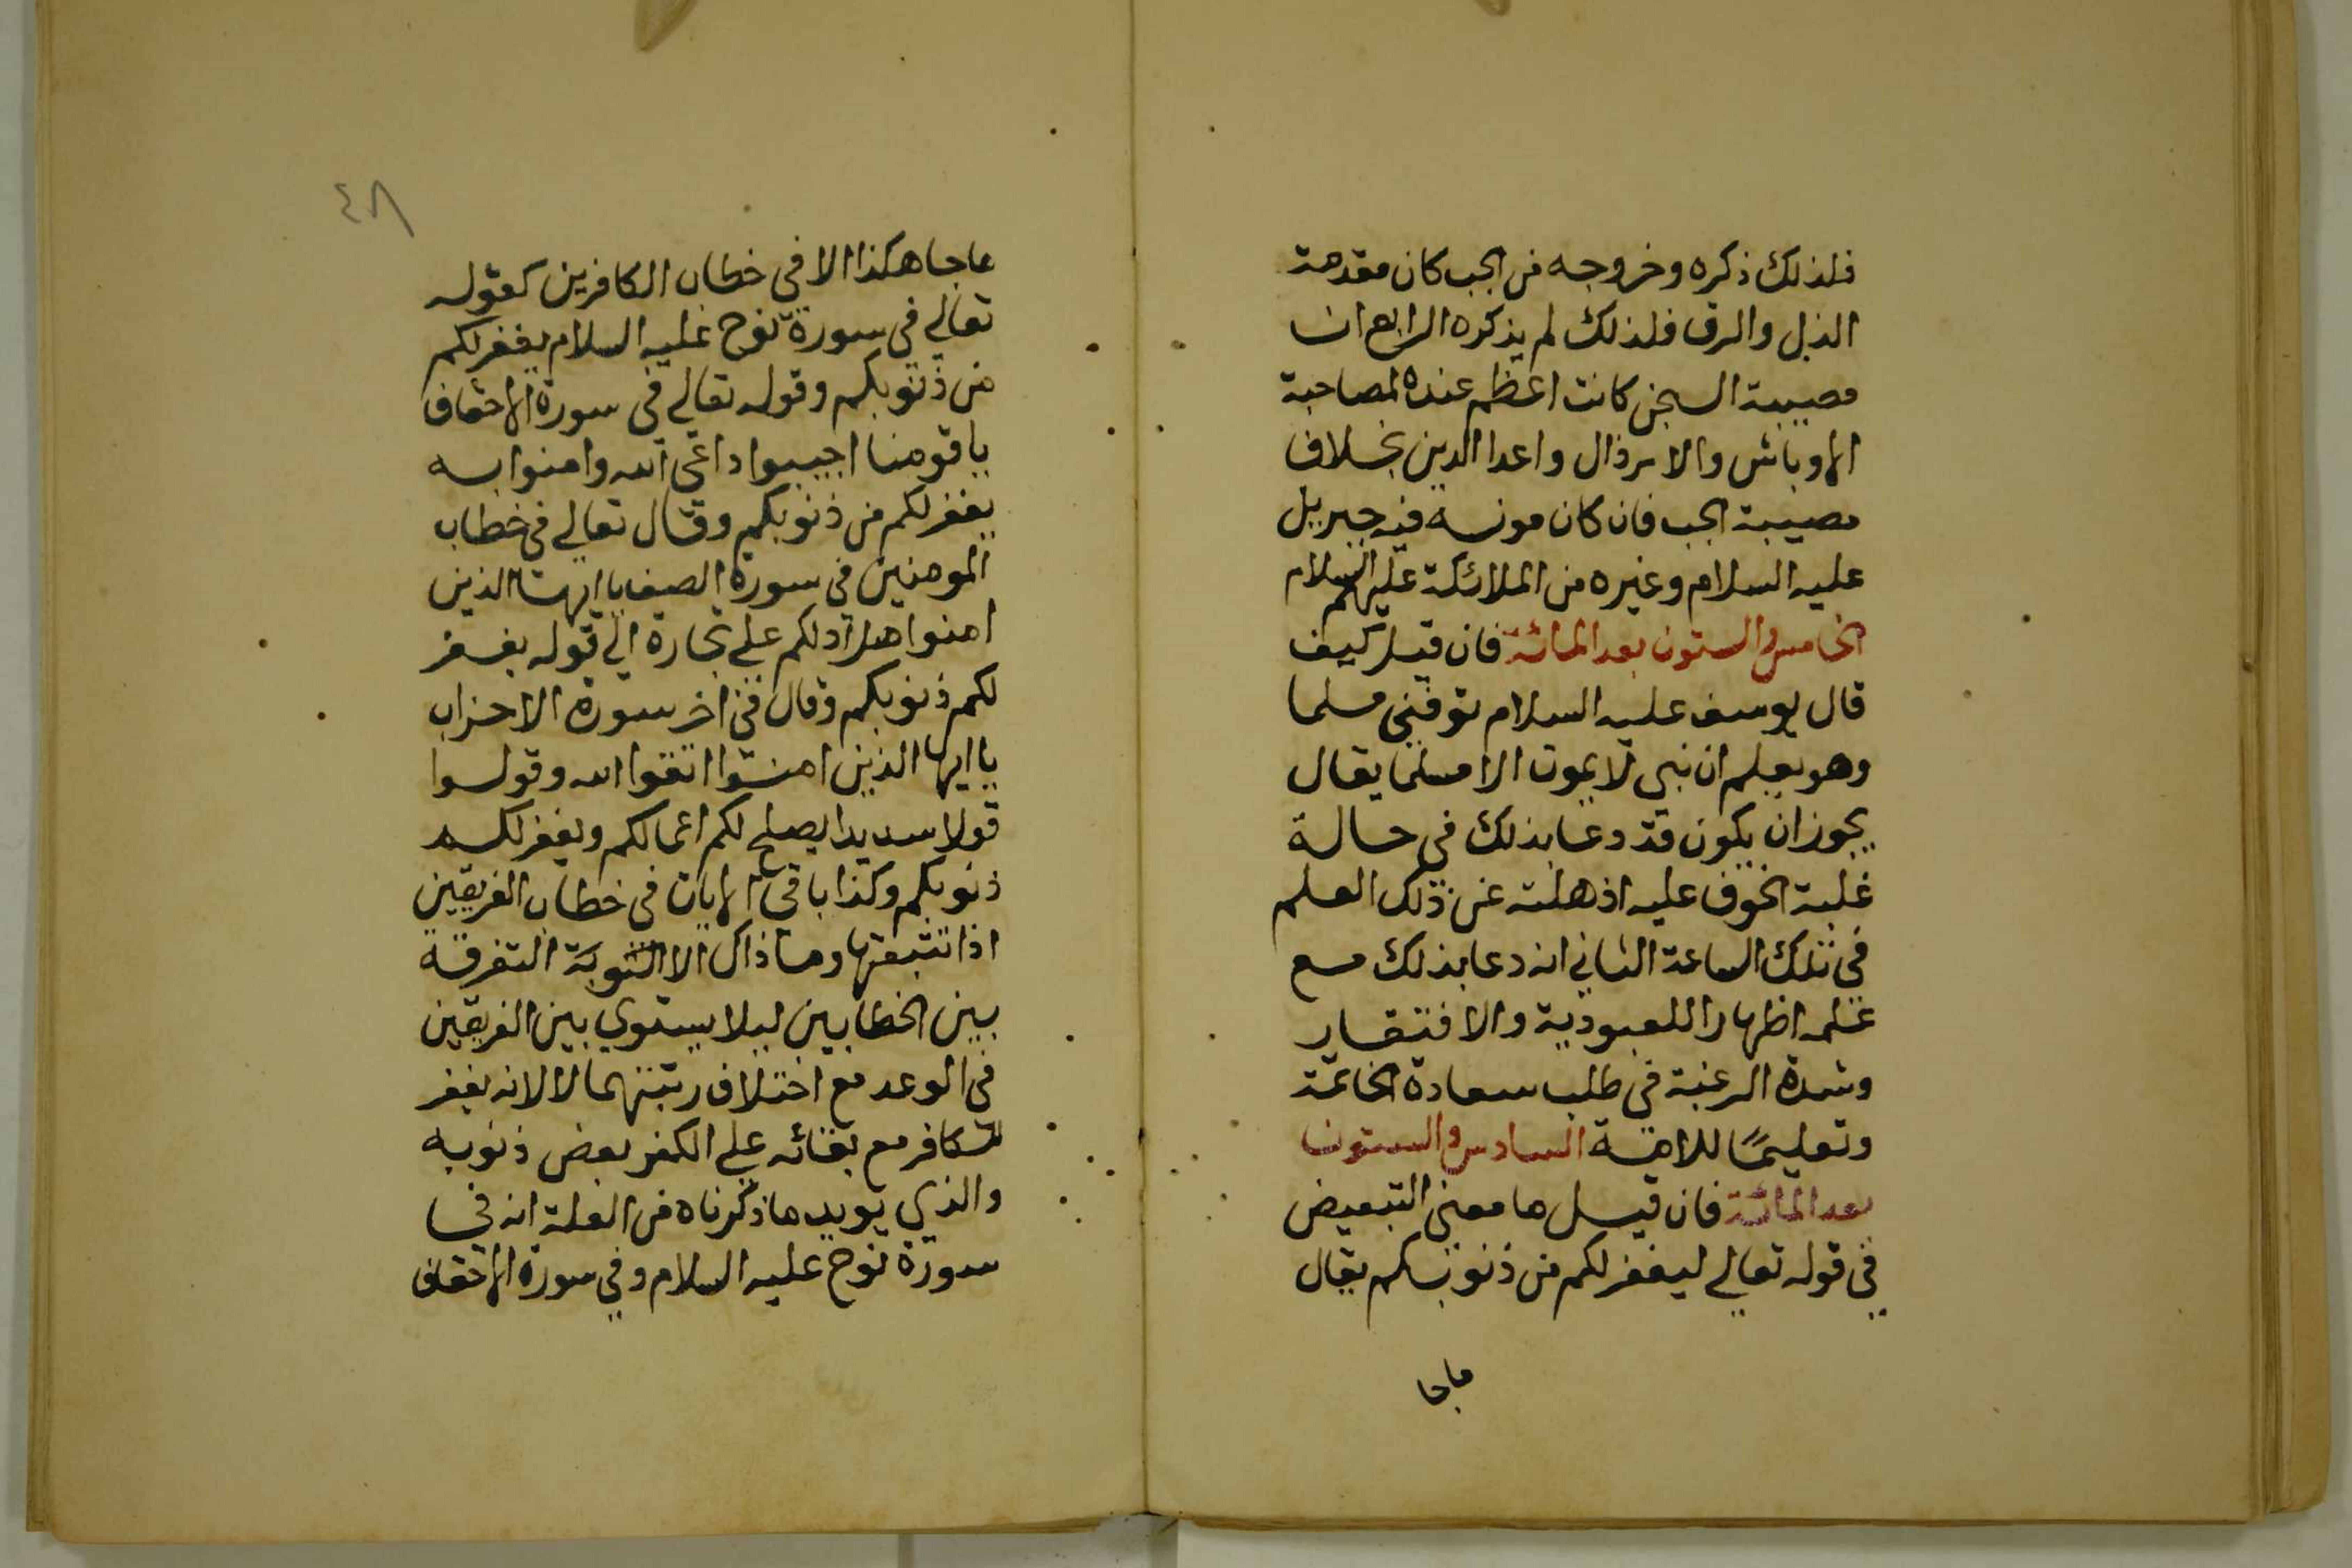 فلذلك ذكره وخروجه من الجب كان مقدمة
الذل والرق فلذلك لم يذكره الرابع ان
مصيبة السجن كانت اعظم عنده لمصاحبة
الاوباش والارذال واعدا الدين بخلاف
مصيبة الجب فان كان مونسه فيه جبريل
عليه السلام وغيره من الملائكة عليهم السلام
الخامس والستون بعد المائة فان قيل كيف
قال يوسف عليه السلام توفني مسلما
وهو يعلم ان نبي لا يموت الا مسلما يقال
يجوز ان يكون قد دعا بذلك في حالة
غلبة الخوف عليه اذهلته عن ذلك العلم
في تلك الساعة الثاني انه دعا بذلك مع
علمه اظهارا للعبودية والافتقار
وشدة الرغبة في طلب سعادة الخاتمة
وتعليمًا للامة السادس والستون
بعد المائة فان قيل ما معنى التبعيض
في قوله تعالي ليغفر لكم من ذنوبكم يقال
ماجا
٤٨
ماجا هكذا الا في خطاب الكافرين كقوله
تعالي في سورة نوح عليه السلام يغفر لكم
من ذنوبكم وقوله تعالي في سورة الاحقاف
يا قومنا اجيبوا داعي الله وامنوا به
يغفر لكم من ذنوبكم وقال تعالي في خطاب
المومنين في سورة الصف يا ايها الذين
امنوا هل ادلكم علي تجارة الي قوله يغفر
لكم ذنوبكم وقال في اخر سورة الاحزاب
يا ايها الذين امنوا اتقوا الله وقولوا
قولا سديدا يصلح لكم اعمالكم ويغفر لكم
ذنوبكم وكذا باقي الايات في خطاب الفريقين
اذا تتبعتها وما ذاك الا التوبة التفرقة
بين الخطابين ليلا يستوي بين الفريقين
في الوعد مع اختلاف رتبتهما لا لانه يغفر
للكافر مع بقائه علي الكفر بعض ذنوبه
والذي يويد ما ذكرناه من العلة انه في
سورة نوح عليه السلام وفي سورة الاحقاف